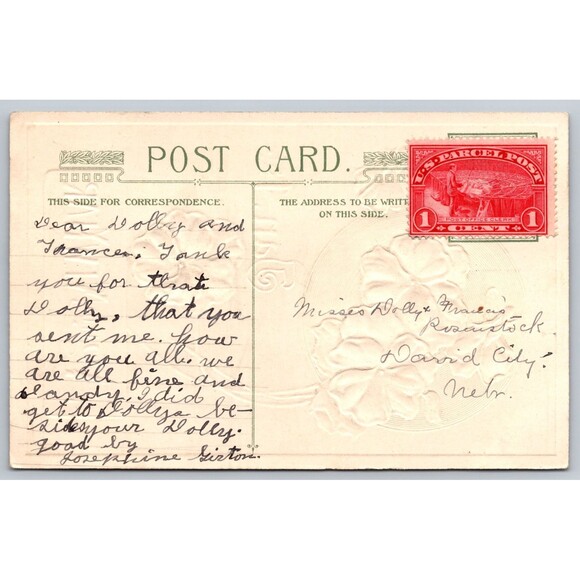 POST CARD.
THIS SIDE FOR CORRESPONDENCE.
THE ADDRESS TO BE WRIT
ON THIS SIDE.
U·S·PARCEL POST
POST OFFICE CLERK
1 CENT 1
Dear Dolly and
Frances. Tank
you for that
Dolly, that you
sent me. how
are you all. we
are all fine and
Dandy. I did
get to Dollys be-
side your Dolly.
good by
Josephine Girton.
Misses Dolly & Francis
Rosenstock
David City.
Nebr.